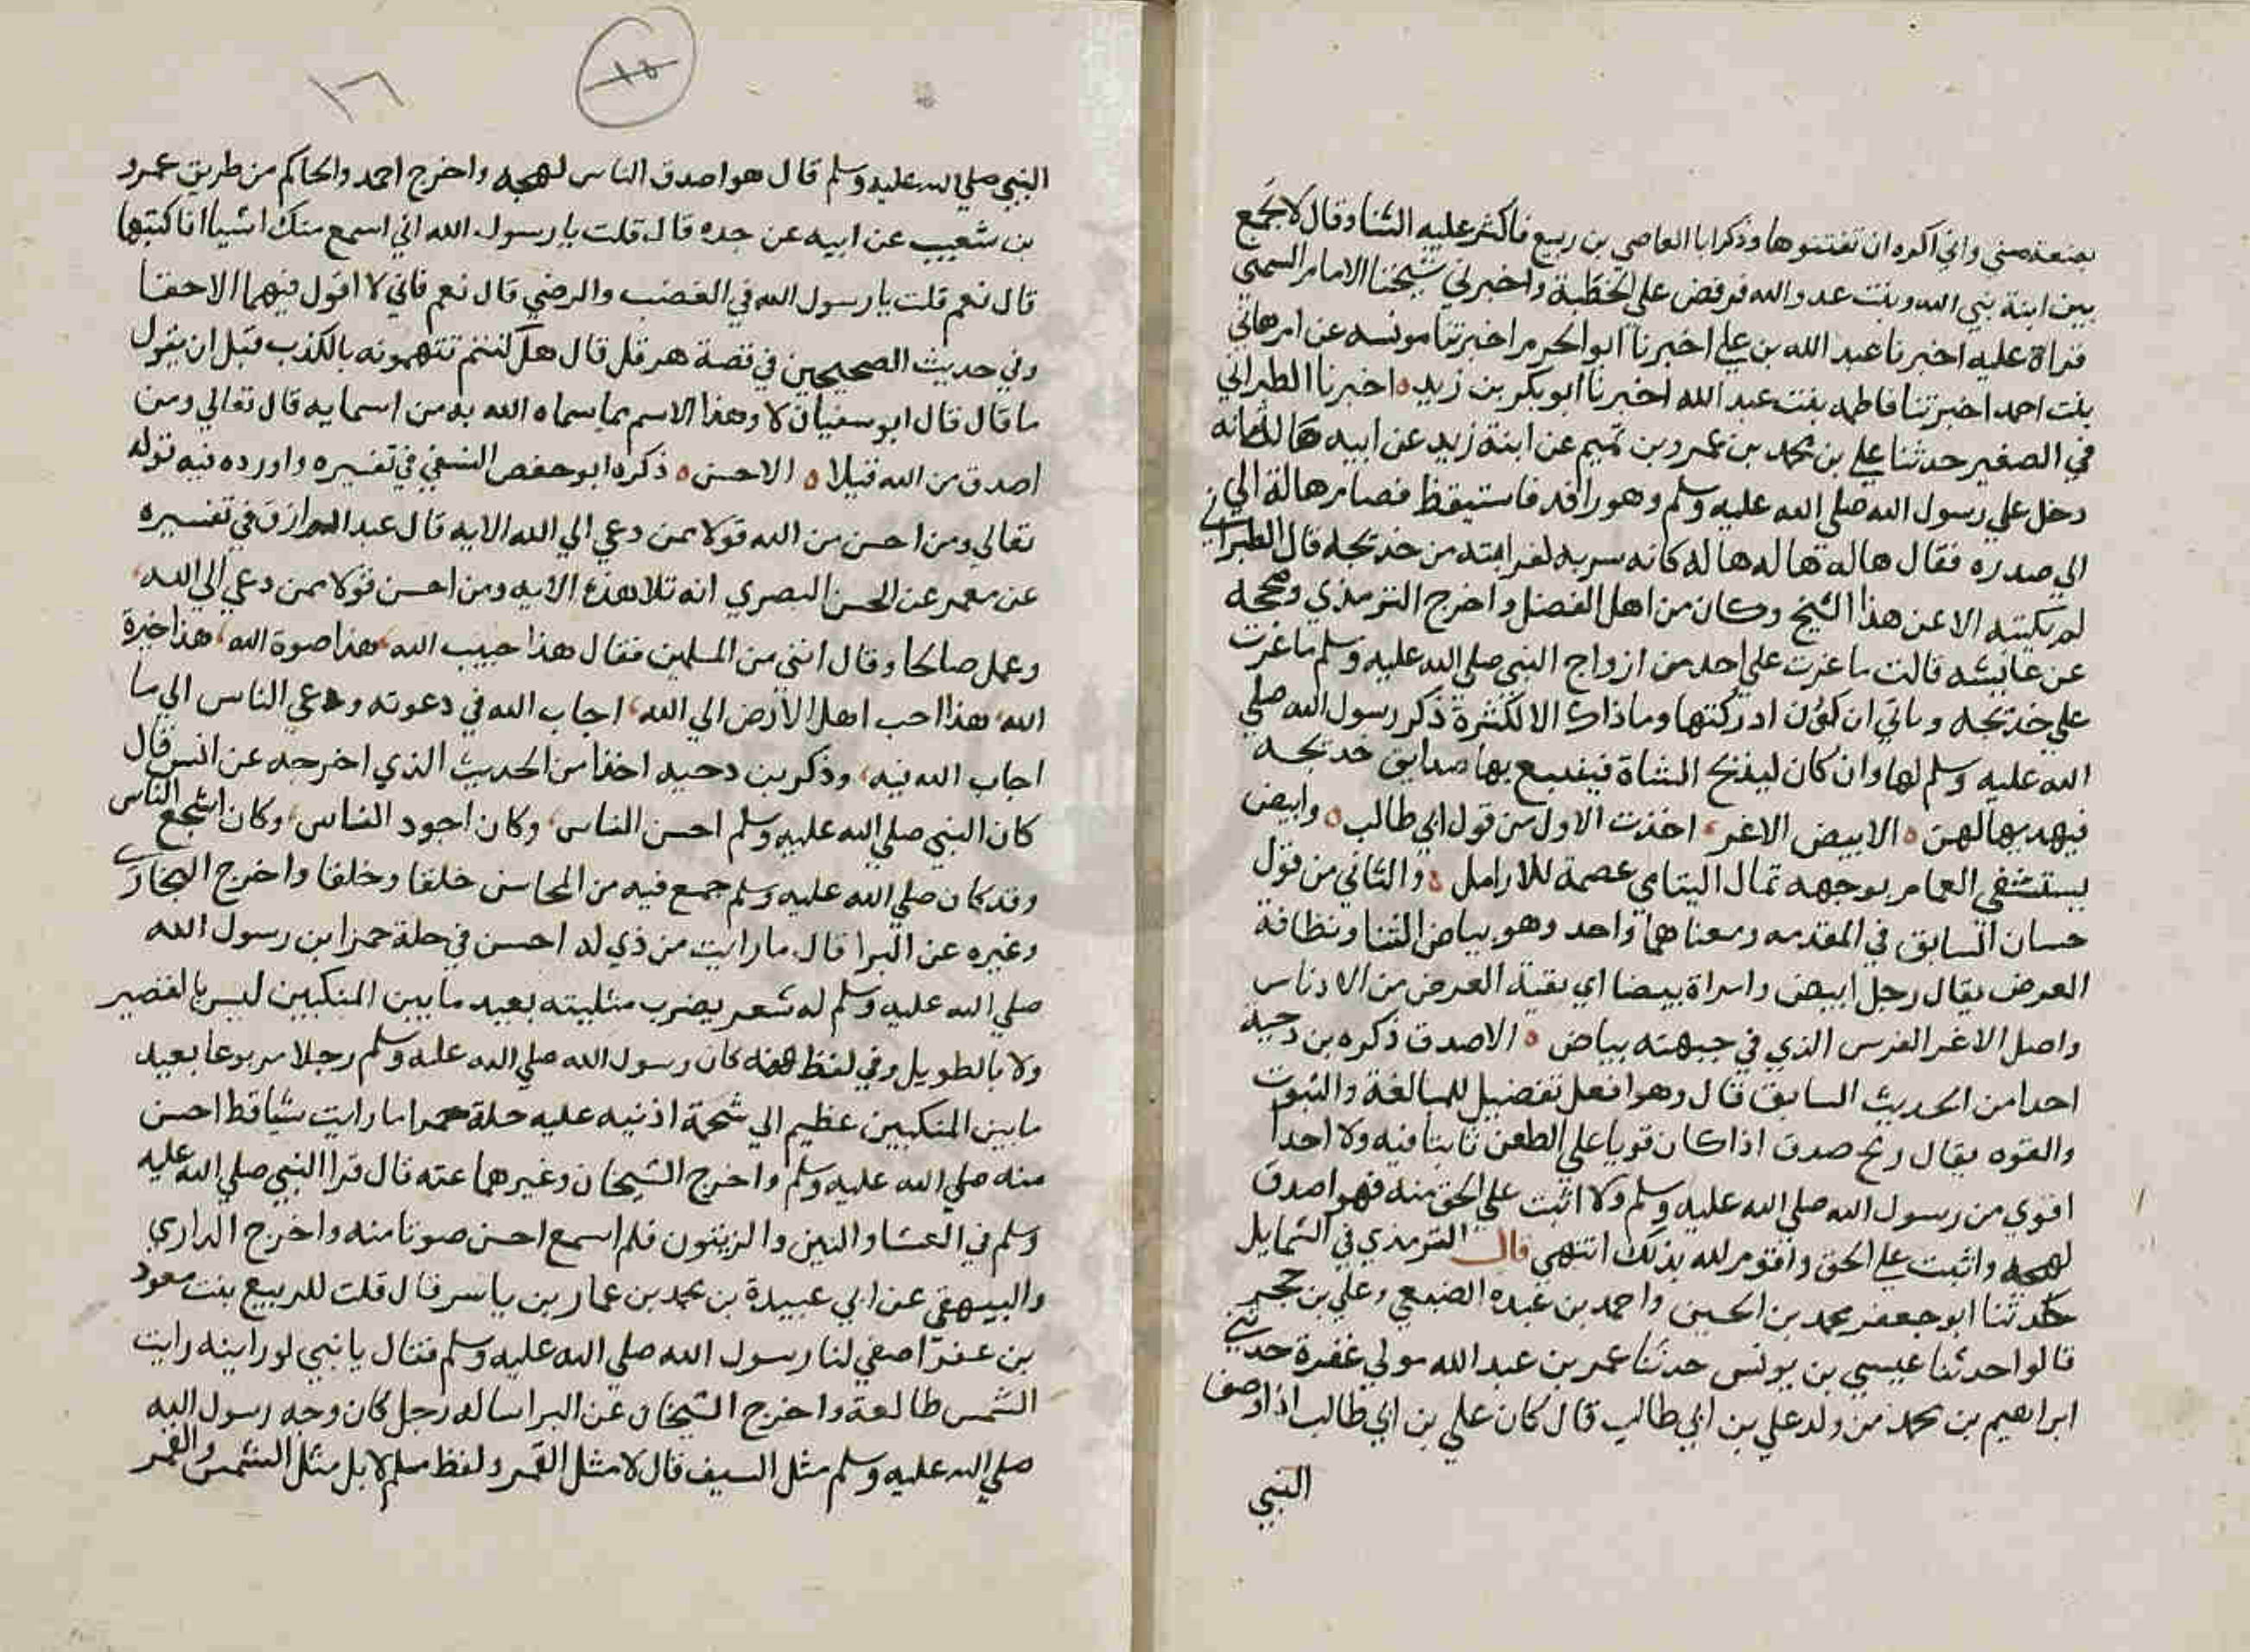 بضعة مني واني اكره ان تفتنوها وذكر ابا العاصي بن ربيع فاكثر عليه الثنا وقال لا يجمع
بين ابنة نبي الله وبنت عدو الله فرفض علي الخطبة واخبرني شيخنا الامام الشمني
قراة عليه اخبرنا عبد الله بن علي اخبرنا ابو الحرم اخبرتنا مونسه عن ام هاني
بنت احمد اخبرتنا فاطمه بنت عبد الله اخبرنا ابو بكر بن زيد اخبرنا الطبراني
في الصغير حدثنا علي بن محمد بن عمرو بن تميم عن ابنة زيد عن ابيه هالة انه
دخل علي رسول الله صلي الله عليه وسلم وهو راقد فاستيقظ فضم هالة الي
الي صدره فقال هالة هاله هاله كانه سر به لقرابته من خديجه قال الطبراني
لم نكتبه الا عن هذا الشيخ وكان من اهل الفضل واخرج الترمذي وصححه
عن عايشه قالت ما غرت علي احد من ازواج النبي صلي الله عليه وسلم ما غرت
علي خديجه وما بي ان اكون ادركتها وما ذاك الا لكثرة ذكر رسول الله صلي
الله عليه وسلم لها وان كان ليذبح الشاة فيتتبع بها صدايق خديجه
فيهديها لهن الابيض الاغر اخذت الاول من قول ابي طالب وابيض
يستشفي الغمام بوجهه ثمال اليتامى عصمة للارامل والثاني من قول
حسان السابق في المقدمه ومعناهما واحد وهو بياض الثنا ونظافة
العرض يقال رجل ابيض وامراة بيضا اي نقية العرض من الادناس
واصل الاغر الفرس الذي في جبهته بياض الاصدق ذكره بن دحية
احدا من الحديث السابق قال وهو افعل تفضيل للمبالغة والثبوت
والقوه يقال رمح صدق اذا كان قويا علي الطعن ثابتا فيه ولا احدا
اقوي من رسول الله صلي الله عليه وسلم ولا اثبت علي الحق منه فهو اصدق
لهجه واثبت علي الحق واقوم لله بذلك انتهي قال الترمذي في الشمايل
حدثنا ابو جعفر محمد بن الحسين واحمد بن عبده الضبعي وعلي بن حجر
قالوا حدثنا عيسي بن يونس حدثنا عمر بن عبد الله مولي غفرة حدثني
ابراهيم بن محمد من ولد علي بن ابي طالب قال كان علي بن ابي طالب اذا وصف
النبي
١٥
١٦
النبي صلي الله عليه وسلم قال هو اصدق الناس لهجه واخرج احمد والحاكم من طريق عمرو
بن شعيب عن ابيه عن جده قال قلت يا رسول الله اني اسمع منك اشيا افاكتبها
قال نعم قلت يا رسول الله في الغضب والرضي قال نعم فاني لا اقول فيهما الا حقا
وفي حديث الصحيحين في قصة هرقل قال هل كنتم تتهمونه بالكذب قبل ان يقول
ما قال قال ابو سفيان لا وهذا الاسم مما سماه الله به من اسمايه قال تعالي ومن
اصدق من الله قيلا الاحسن ذكره ابو حفص النسفي في تفسيره واورده فيه قوله
تعالي ومن احسن من الله قولا ممن دعي الي الله الايه قال عبد الرزاق في تفسيره
عن معمر عن الحسن البصري انه تلا هذه الايه ومن احسن قولا ممن دعي الي الله
وعمل صالحا وقال انني من المسلمين فقال هذا حبيب الله هذا صفوة الله هذا خيرة
الله هذا احب اهل الارض الي الله اجاب الله في دعوته ودعي الناس الي ما
اجاب الله فيه وذكر بن دحيه اخذا من الحديث الذي اخرجه عن انس قال
كان النبي صلي الله عليه وسلم احسن الناس وكان اجود الناس وكان اشجع الناس
وقد كان صلي الله عليه وسلم جمع فيه من المحاسن خلقا وخلقا واخرج البخاري
وغيره عن البرا قال ما رايت من ذي لمه احسن في حلة حمرا من رسول الله
صلي الله عليه وسلم له شعر يضرب منكبيه بعيد ما بين المنكبين ليس بالقصير
ولا بالطويل وفي لفظ كان رسول الله صلي الله عليه وسلم رجلا مربوعا بعيد
ما بين المنكبين عظيم الي شحمة اذنيه عليه حلة حمرا ما رايت شيا قط احسن
منه صلي الله عليه وسلم واخرج الشيخان وغيرهما عنه قال قرا النبي صلي الله عليه
وسلم في العشا والتين والزيتون فلم اسمع احسن صوتا منه واخرج الدارمي
والبيهقي عن ابي عبيدة بن محمد بن عمار بن ياسر قال قلت للربيع بنت معوذ
بن عفرا صفي لنا رسول الله صلي الله عليه وسلم فقال يا بني لو رايته رايت
الشمس طالعة واخرج الشيخان عن البرا ساله رجل كان وجه رسول الله
صلي الله عليه وسلم مثل السيف قال لا مثل القمر ولفظ مسلم لا بل مثل الشمس والقمر